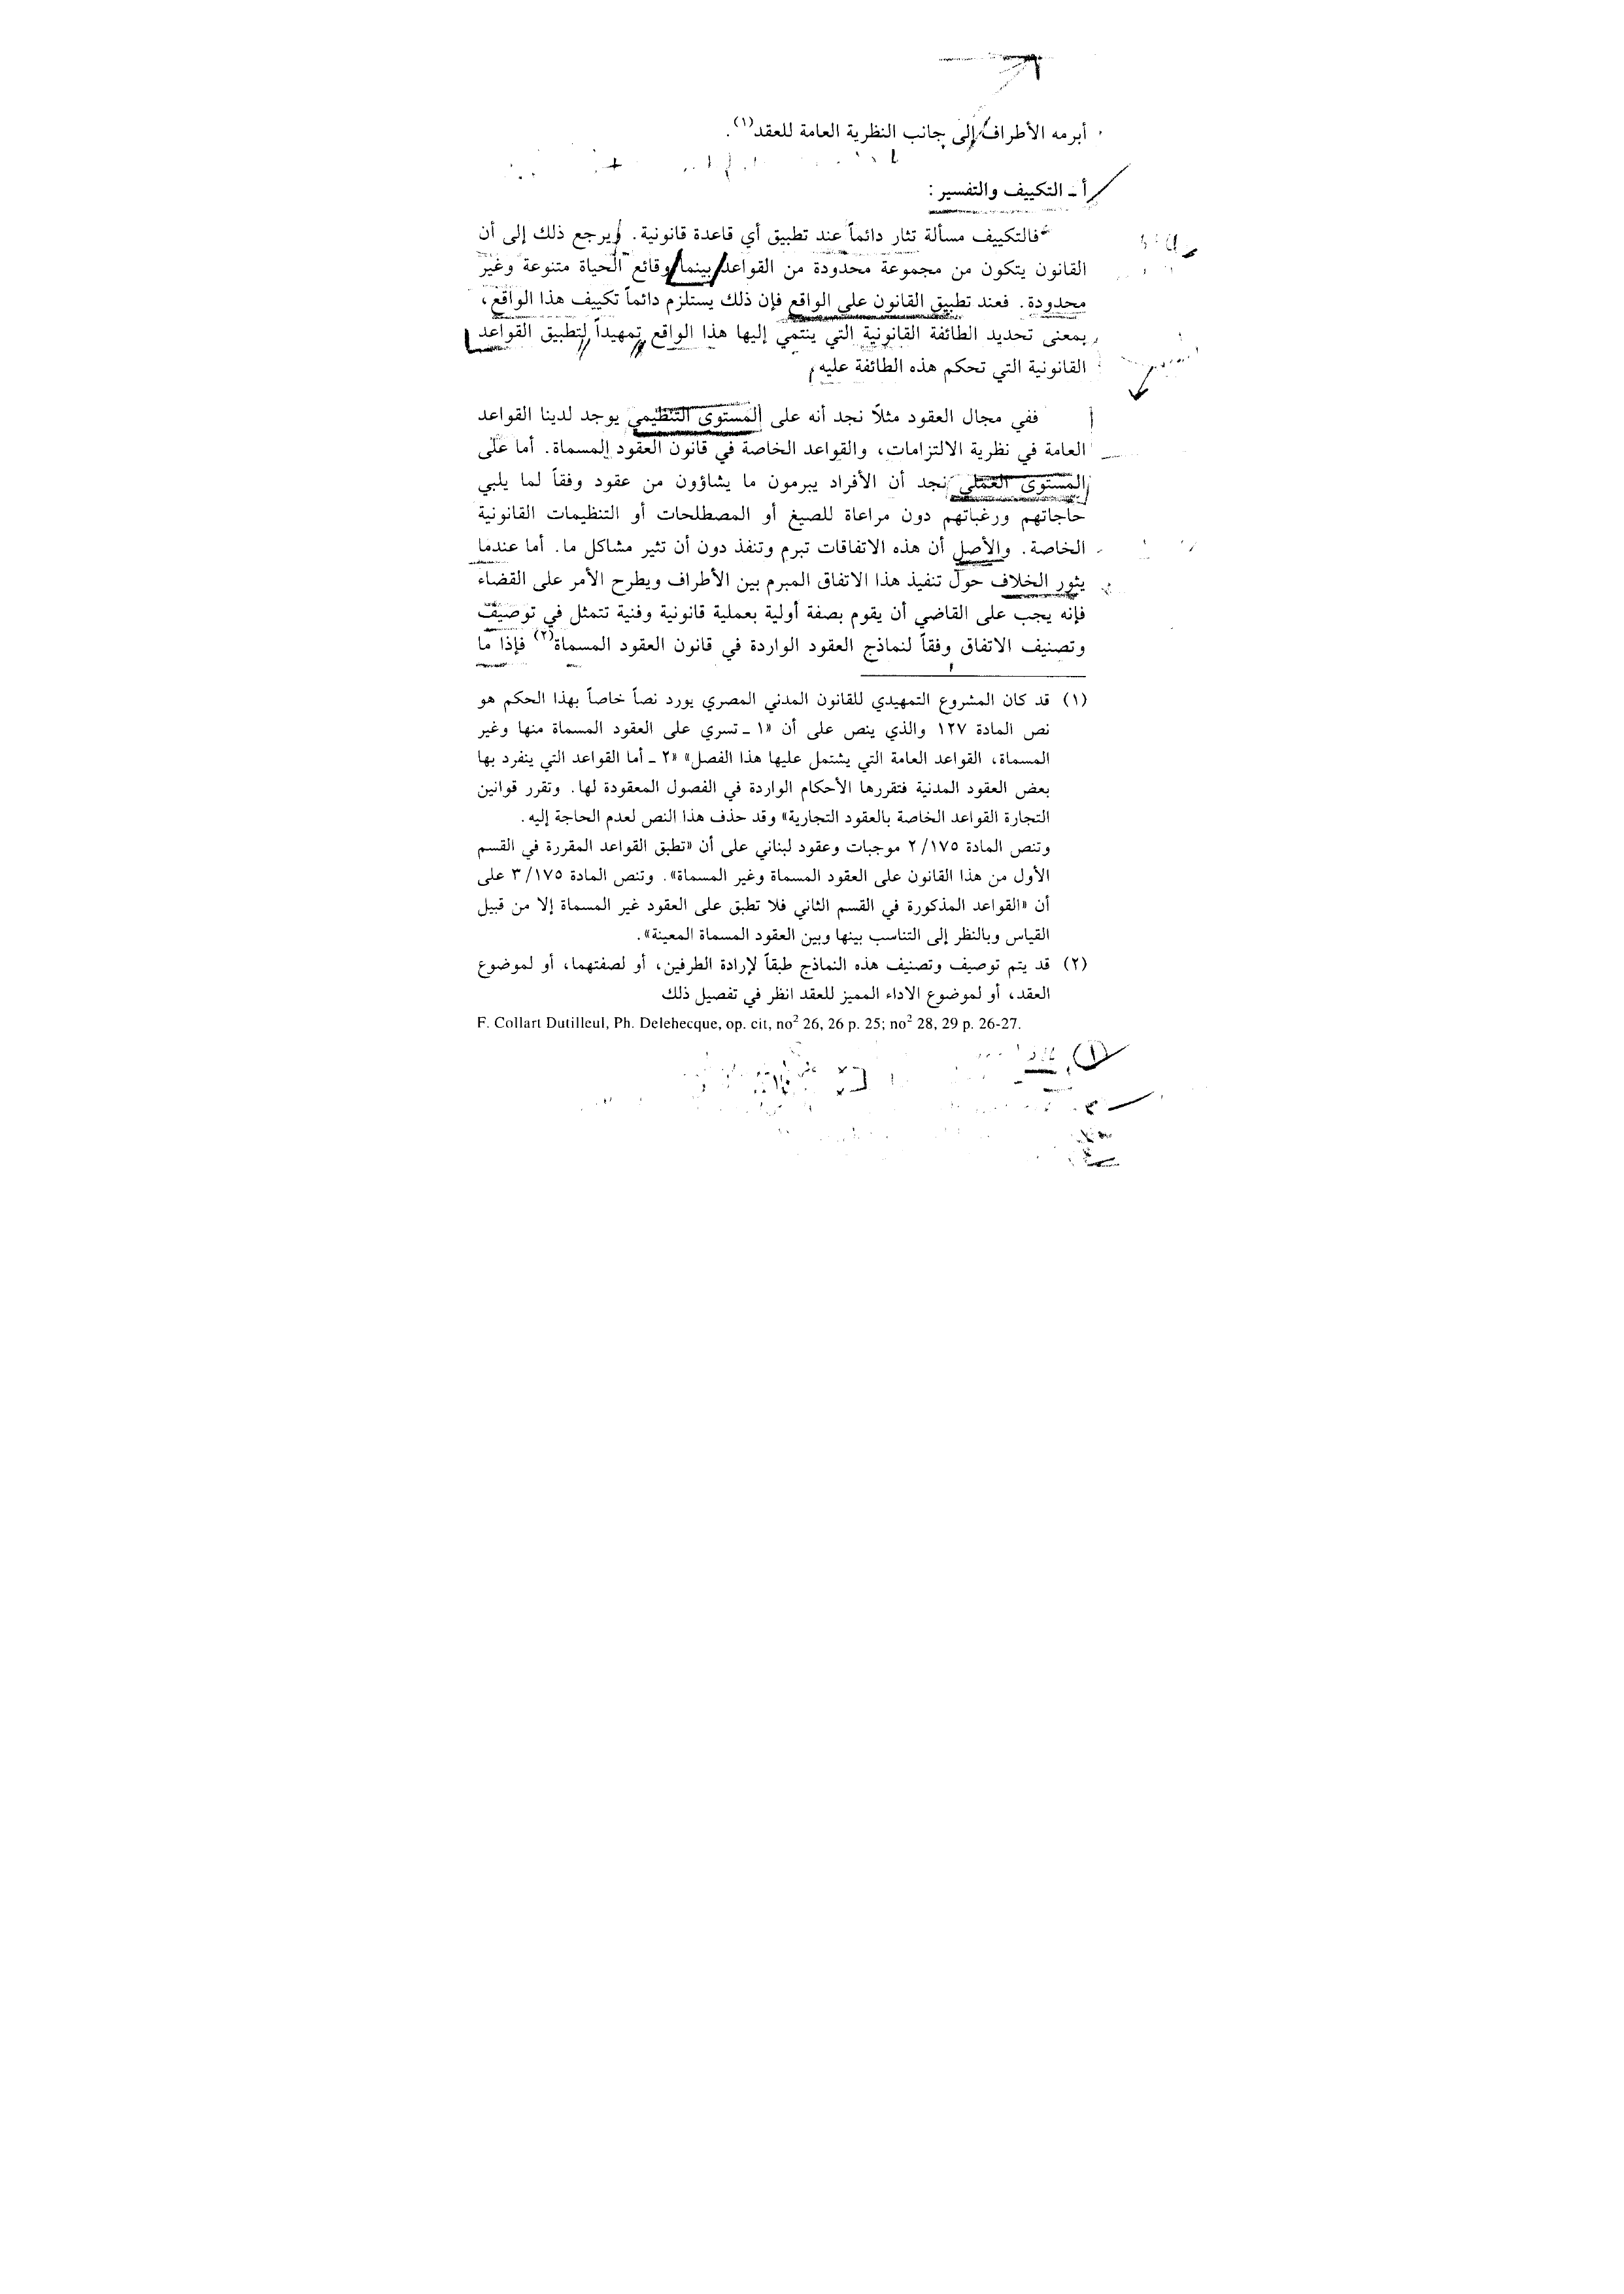 أبرمه الأطراف إلى جانب النظرية العامة للعقد(١).
أ ـ التكييف والتفسير:
فالتكييف مسألة تثار دائماً عند تطبيق أي قاعدة قانونية. ويرجع ذلك إلى أن
القانون يتكون من مجموعة محدودة من القواعد بينما وقائع الحياة متنوعة وغير
محدودة. فعند تطبيق القانون على الواقع فإن ذلك يستلزم دائماً تكييف هذا الواقع،
بمعنى تحديد الطائفة القانونية التي ينتمي إليها هذا الواقع تمهيداً لتطبيق القواعد
القانونية التي تحكم هذه الطائفة عليه.
ففي مجال العقود مثلاً نجد أنه على المستوى التنظيمي يوجد لدينا القواعد
العامة في نظرية الالتزامات، والقواعد الخاصة في قانون العقود المسماة. أما على
المستوى العملي نجد أن الأفراد يبرمون ما يشاؤون من عقود وفقاً لما يلبي
حاجاتهم ورغباتهم دون مراعاة للصيغ أو المصطلحات أو التنظيمات القانونية
الخاصة. والأصل أن هذه الاتفاقات تبرم وتنفذ دون أن تثير مشاكل ما. أما عندما
يثور الخلاف حول تنفيذ هذا الاتفاق المبرم بين الأطراف ويطرح الأمر على القضاء
فإنه يجب على القاضي أن يقوم بصفة أولية بعملية قانونية وفنية تتمثل في توصيف
وتصنيف الاتفاق وفقاً لنماذج العقود الواردة في قانون العقود المسماة(٢) فإذا ما
(١) قد كان المشروع التمهيدي للقانون المدني المصري يورد نصاً خاصاً بهذا الحكم هو
نص المادة ١٢٧ والذي ينص على أن «١ ـ تسري على العقود المسماة منها وغير
المسماة، القواعد العامة التي يشتمل عليها هذا الفصل» «٢ ـ أما القواعد التي ينفرد بها
بعض العقود المدنية فتقررها الأحكام الواردة في الفصول المعقودة لها. وتقرر قوانين
التجارة القواعد الخاصة بالعقود التجارية» وقد حذف هذا النص لعدم الحاجة إليه.
وتنص المادة ٢/١٧٥ موجبات وعقود لبناني على أن «تطبق القواعد المقررة في القسم
الأول من هذا القانون على العقود المسماة وغير المسماة». وتنص المادة ٣/١٧٥ على
أن «القواعد المذكورة في القسم الثاني فلا تطبق على العقود غير المسماة إلا من قبيل
القياس وبالنظر إلى التناسب بينها وبين العقود المسماة المعينة».
(٢) قد يتم توصيف وتصنيف هذه النماذج طبقاً لإرادة الطرفين، أو لصفتهما، أو لموضوع
العقد، أو لموضوع الاداء المميز للعقد انظر في تفصيل ذلك
F. Collart Dutilleul, Ph. Delehecque, op. cit, no² 26, 26 p. 25; no² 28, 29 p. 26-27.